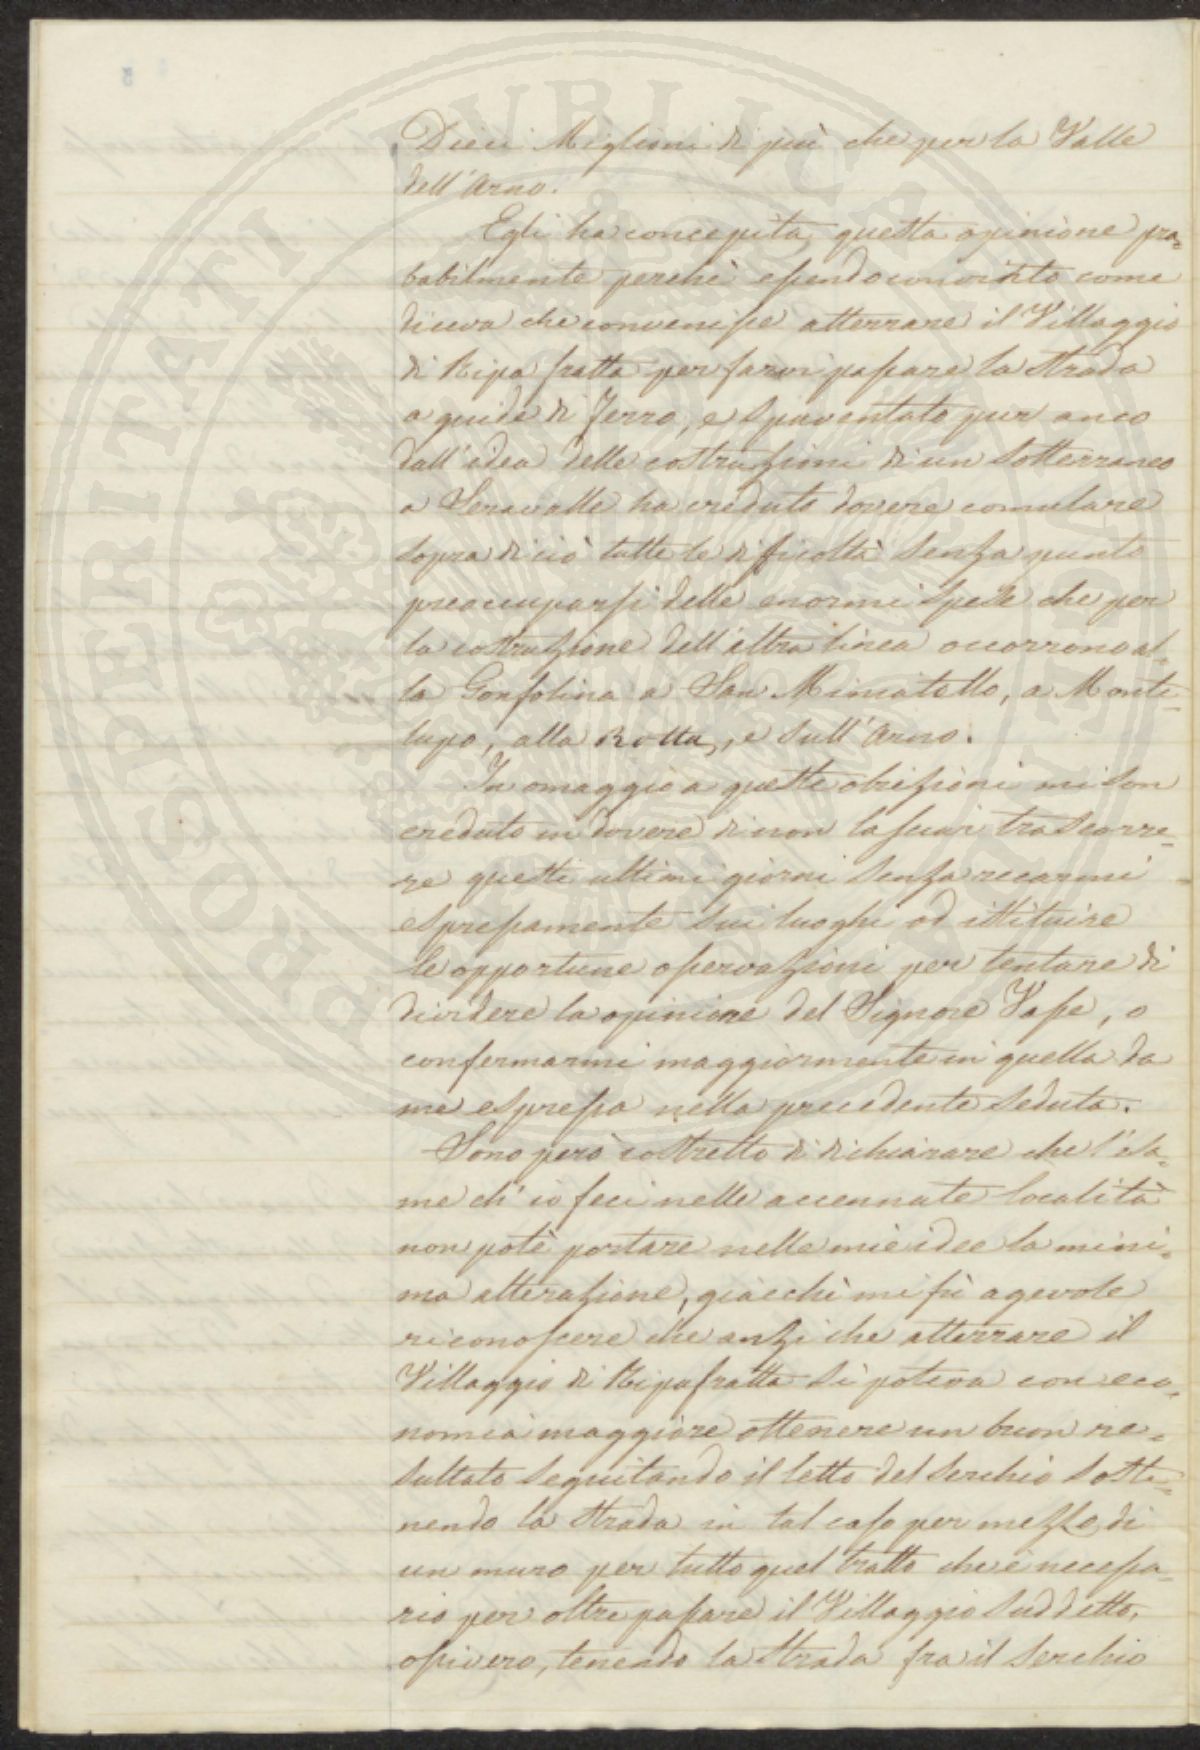 Dieci Miglioni di più che per la Valle
dell'Arno.
Egli ha concepita, questa opinione pro=
babilmente perchè essendo convinto come
diceva che convenisse atterrare il Villaggio
di Ripa fratta per farvi passare la strada
a guide di ferro, e spaventato pur anco
dall'idea delle costruzioni di un Sotterraneo
a Seravalle ha creduto dovere comulare
sopra di ciò tutte le dificoltà senza punto
preoccuparsi delle enormi spese che per
la costruzione dell'altra linea occorrono al=
la Gonfolina a San Miniatello, a Monte=
lupo, alla Rotta, e sull'Arno.
In omaggio a queste obiezioni mi son
creduto in dovere di non lasciar trascorre=
re questi ultimi giorni senza recarmi
espressamente sui luoghi ad istituire
le opportune osservazioni per tentare di
dividere la opinione del Signore Vasse, o
confermarmi maggiormente in quella da
me espressa nella precedente seduta.
Sono però costretto di dichiarare che l'esa=
me ch'io feci nelle accennate località
non potè portare nelle mie idee la mini=
ma alterazione, giacchè mi fù agevole
riconoscere che anzi che atterrare il
Villaggio di Ripafratta si poteva con eco=
nomia maggiore ottenere un buon re=
sultato seguitando il letto del Serchio soste=
nendo la strada in tal caso per mezzo di
un muro per tutto quel tratto che è necessa=
rio per oltre passare il Villaggio suddetto,
ossivero, tenendo la strada fra il Serchio
PROSPERITATI PVBLICAE